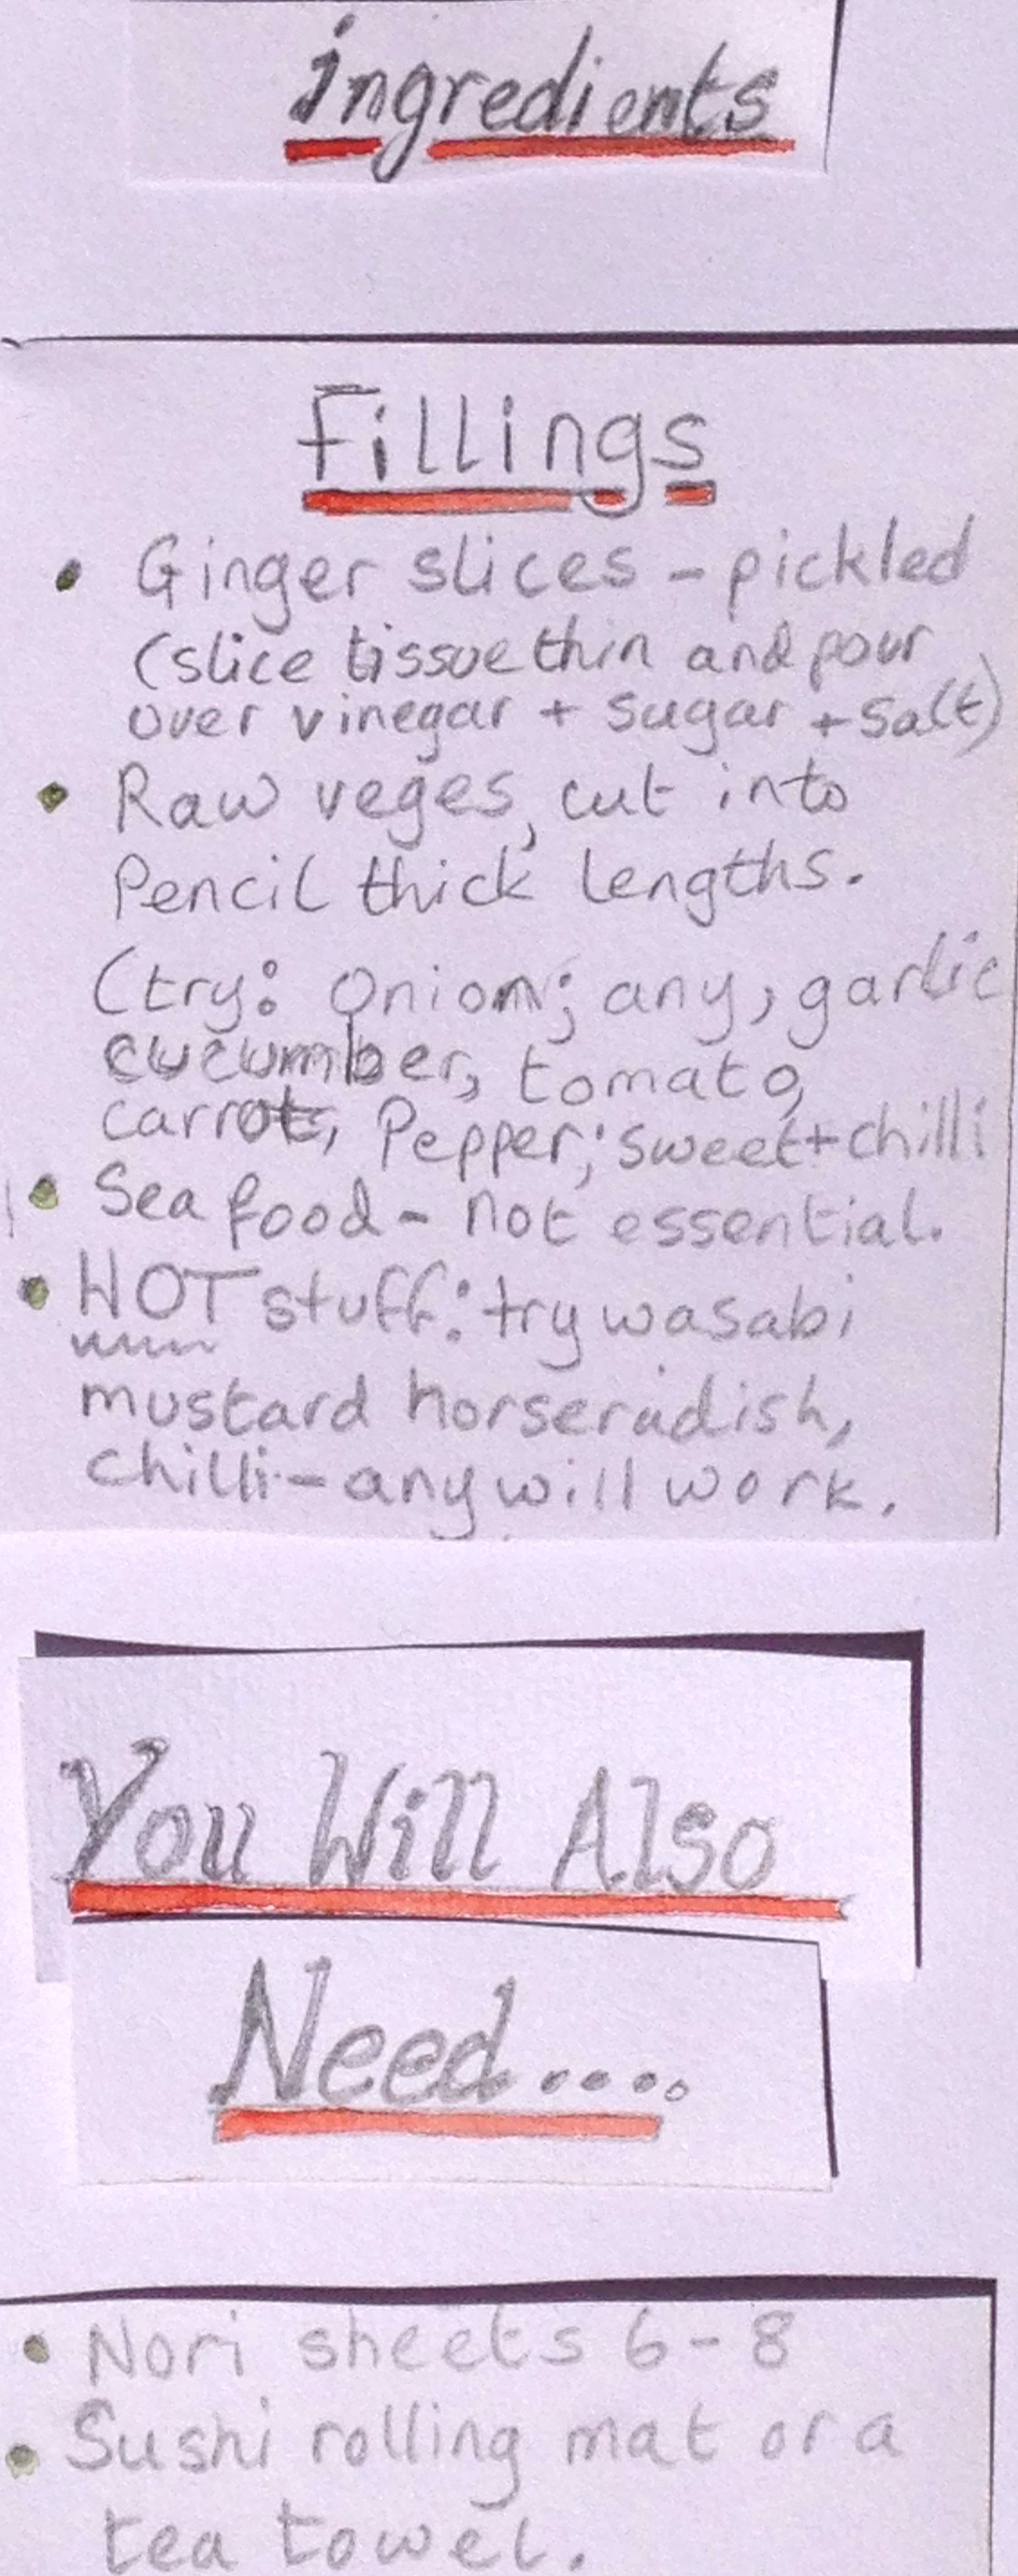 ingredients
Fillings
• Ginger slices - pickled
(slice tissue thin and pour
over vinegar + sugar + salt)
• Raw veges, cut into
Pencil thick lengths.
(try: Onion; any, garlic
cucumber, tomato,
carrot, Pepper; sweet + chilli
• Sea food - not essential.
• HOT stuff: try wasabi
mustard horseradish,
chilli - any will work.
You Will Also
Need....
• Nori sheets 6-8
• Sushi rolling mat or a
tea towel.